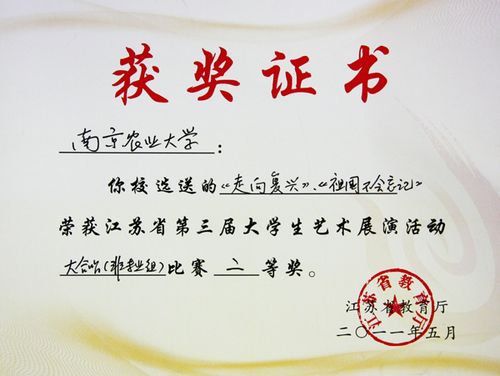 获奖证书
南京农业大学：
你校选送的《走向复兴》、《祖国不会忘记》
荣获江苏省第三届大学生艺术展演活动
大合唱(非专业组)比赛二等奖。
江苏省教育厅
江苏省教育厅
二〇一一年五月